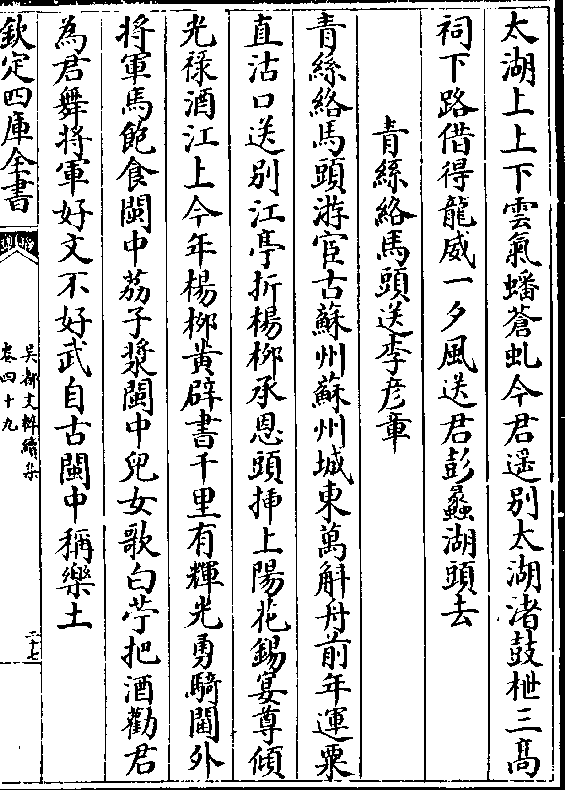 太湖上上下雲氣蟠蒼虬今君遥别太湖渚鼓枻三髙
祠下路借得龍威一夕風送君彭蠡湖頭去
青絲絡馬頭送李彦章
青絲絡馬頭游宦古蘇州蘇州城東萬斛舟前年運粟
直沽口送别江亭折楊桞承恩頭揷上陽花錫宴尊傾
光禄酒江上今年楊桞黄辟書千里有輝光勇騎閫外
将軍馬飽食閩中荔子漿閩中兒女歌白苧把酒勸君
為君舞将軍好文不好武自古閩中稱樂土
欽定四庫全書
吳都文粹續集
卷四十九
二十七